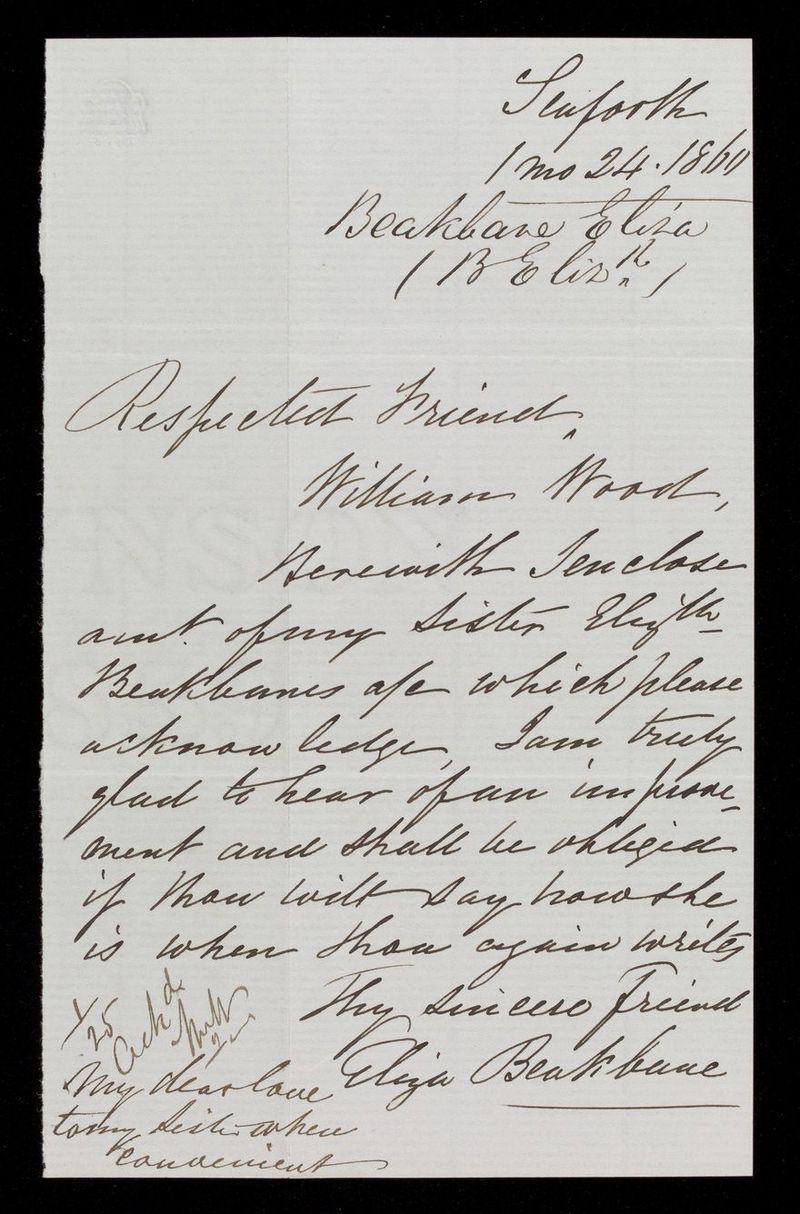 Seaforth
1 mo 24. 1860
Beakbane Eliza
( B Eliz.th )
Respected Friend,
William Wood,
Herewith I enclose
amt. of my Sister Elizth
Beakbanes a/c which please
acknowledge, I am truly
glad to hear of an improve-
ment and shall be obliged
if thou wilt say how she
is when thou again writes
Thy sincere Friend
Eliza Beakbane
1/25
Ackd
My dear love
to my Sister when
convenient